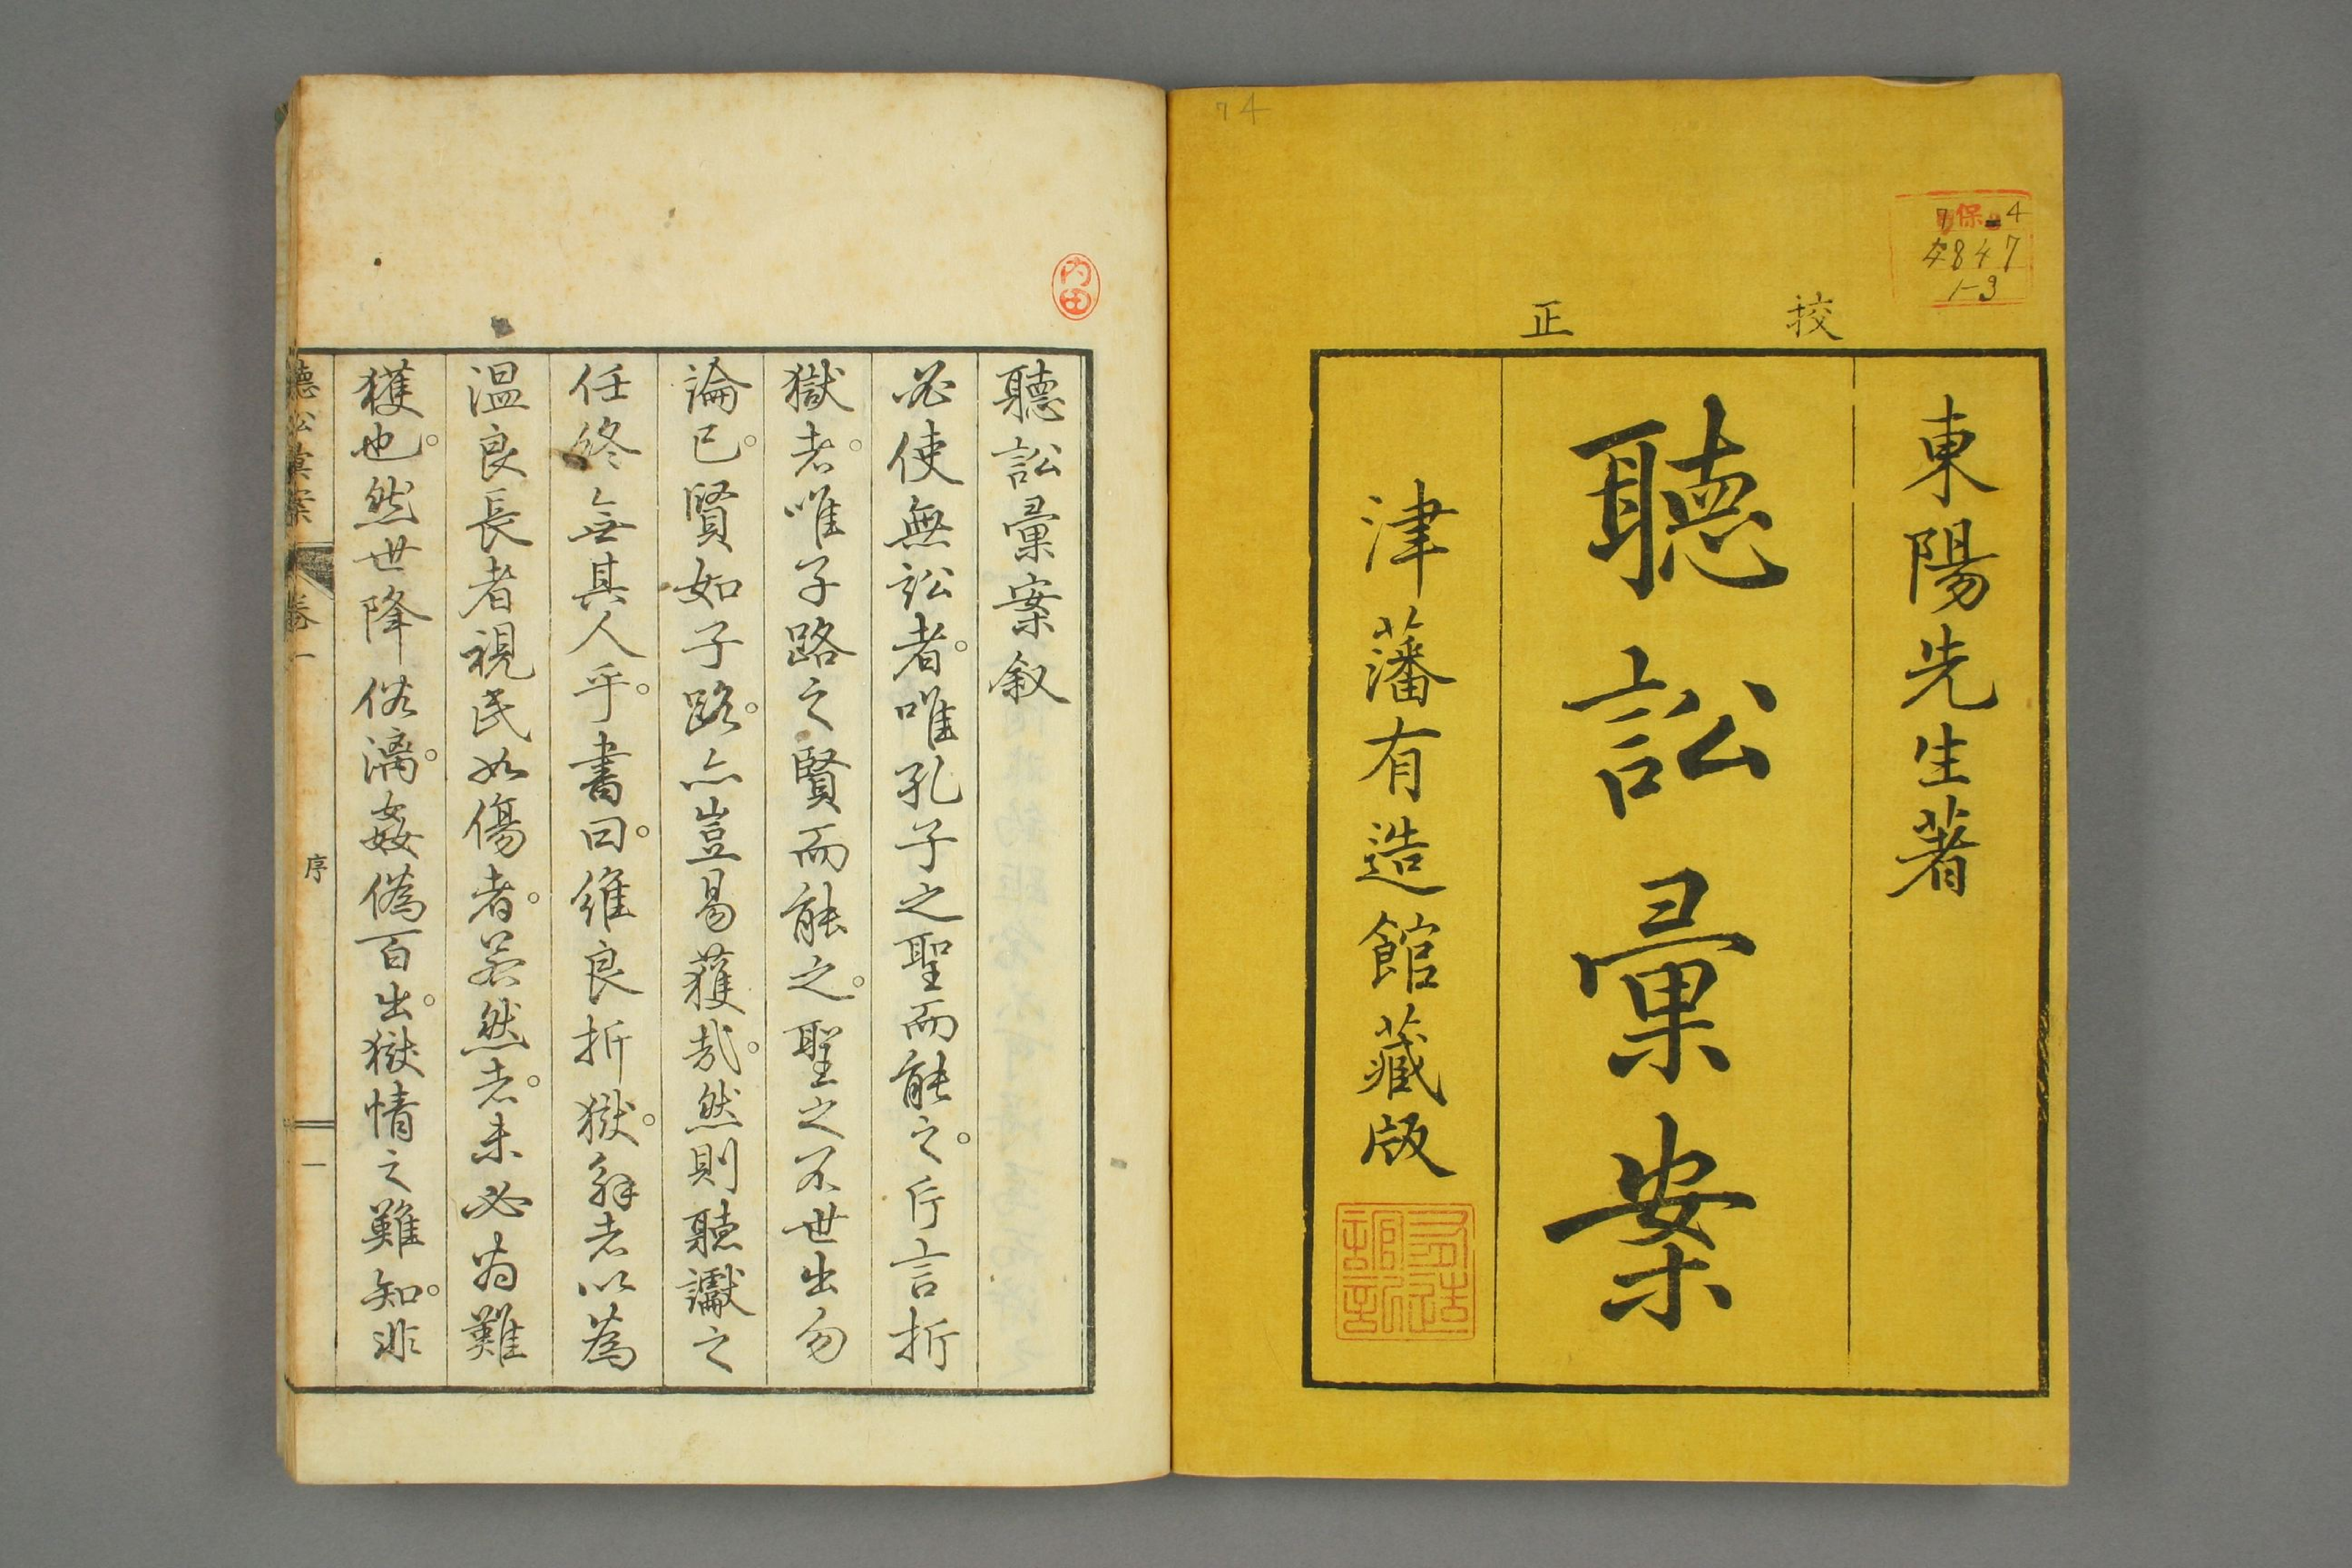 74
保
7-4
4847
1-3
校正
東陽先生著
聽訟彙案
津藩有造館藏版
内田
聽訟彙案叙
必使無訟者。唯孔子之聖而能之。片言折
獄者。唯子路之賢而能之。聖之不世出勿
論已。賢如子路。亦豈易獲哉。然則聽讞之
任終無其人乎。書曰。維良折獄。解者以為
溫良長者視民如傷者。若然者。未必為難
獲也。然世降俗漓。姦偽百出。獄情之難知。非
聽訟彙案
卷一
序
一